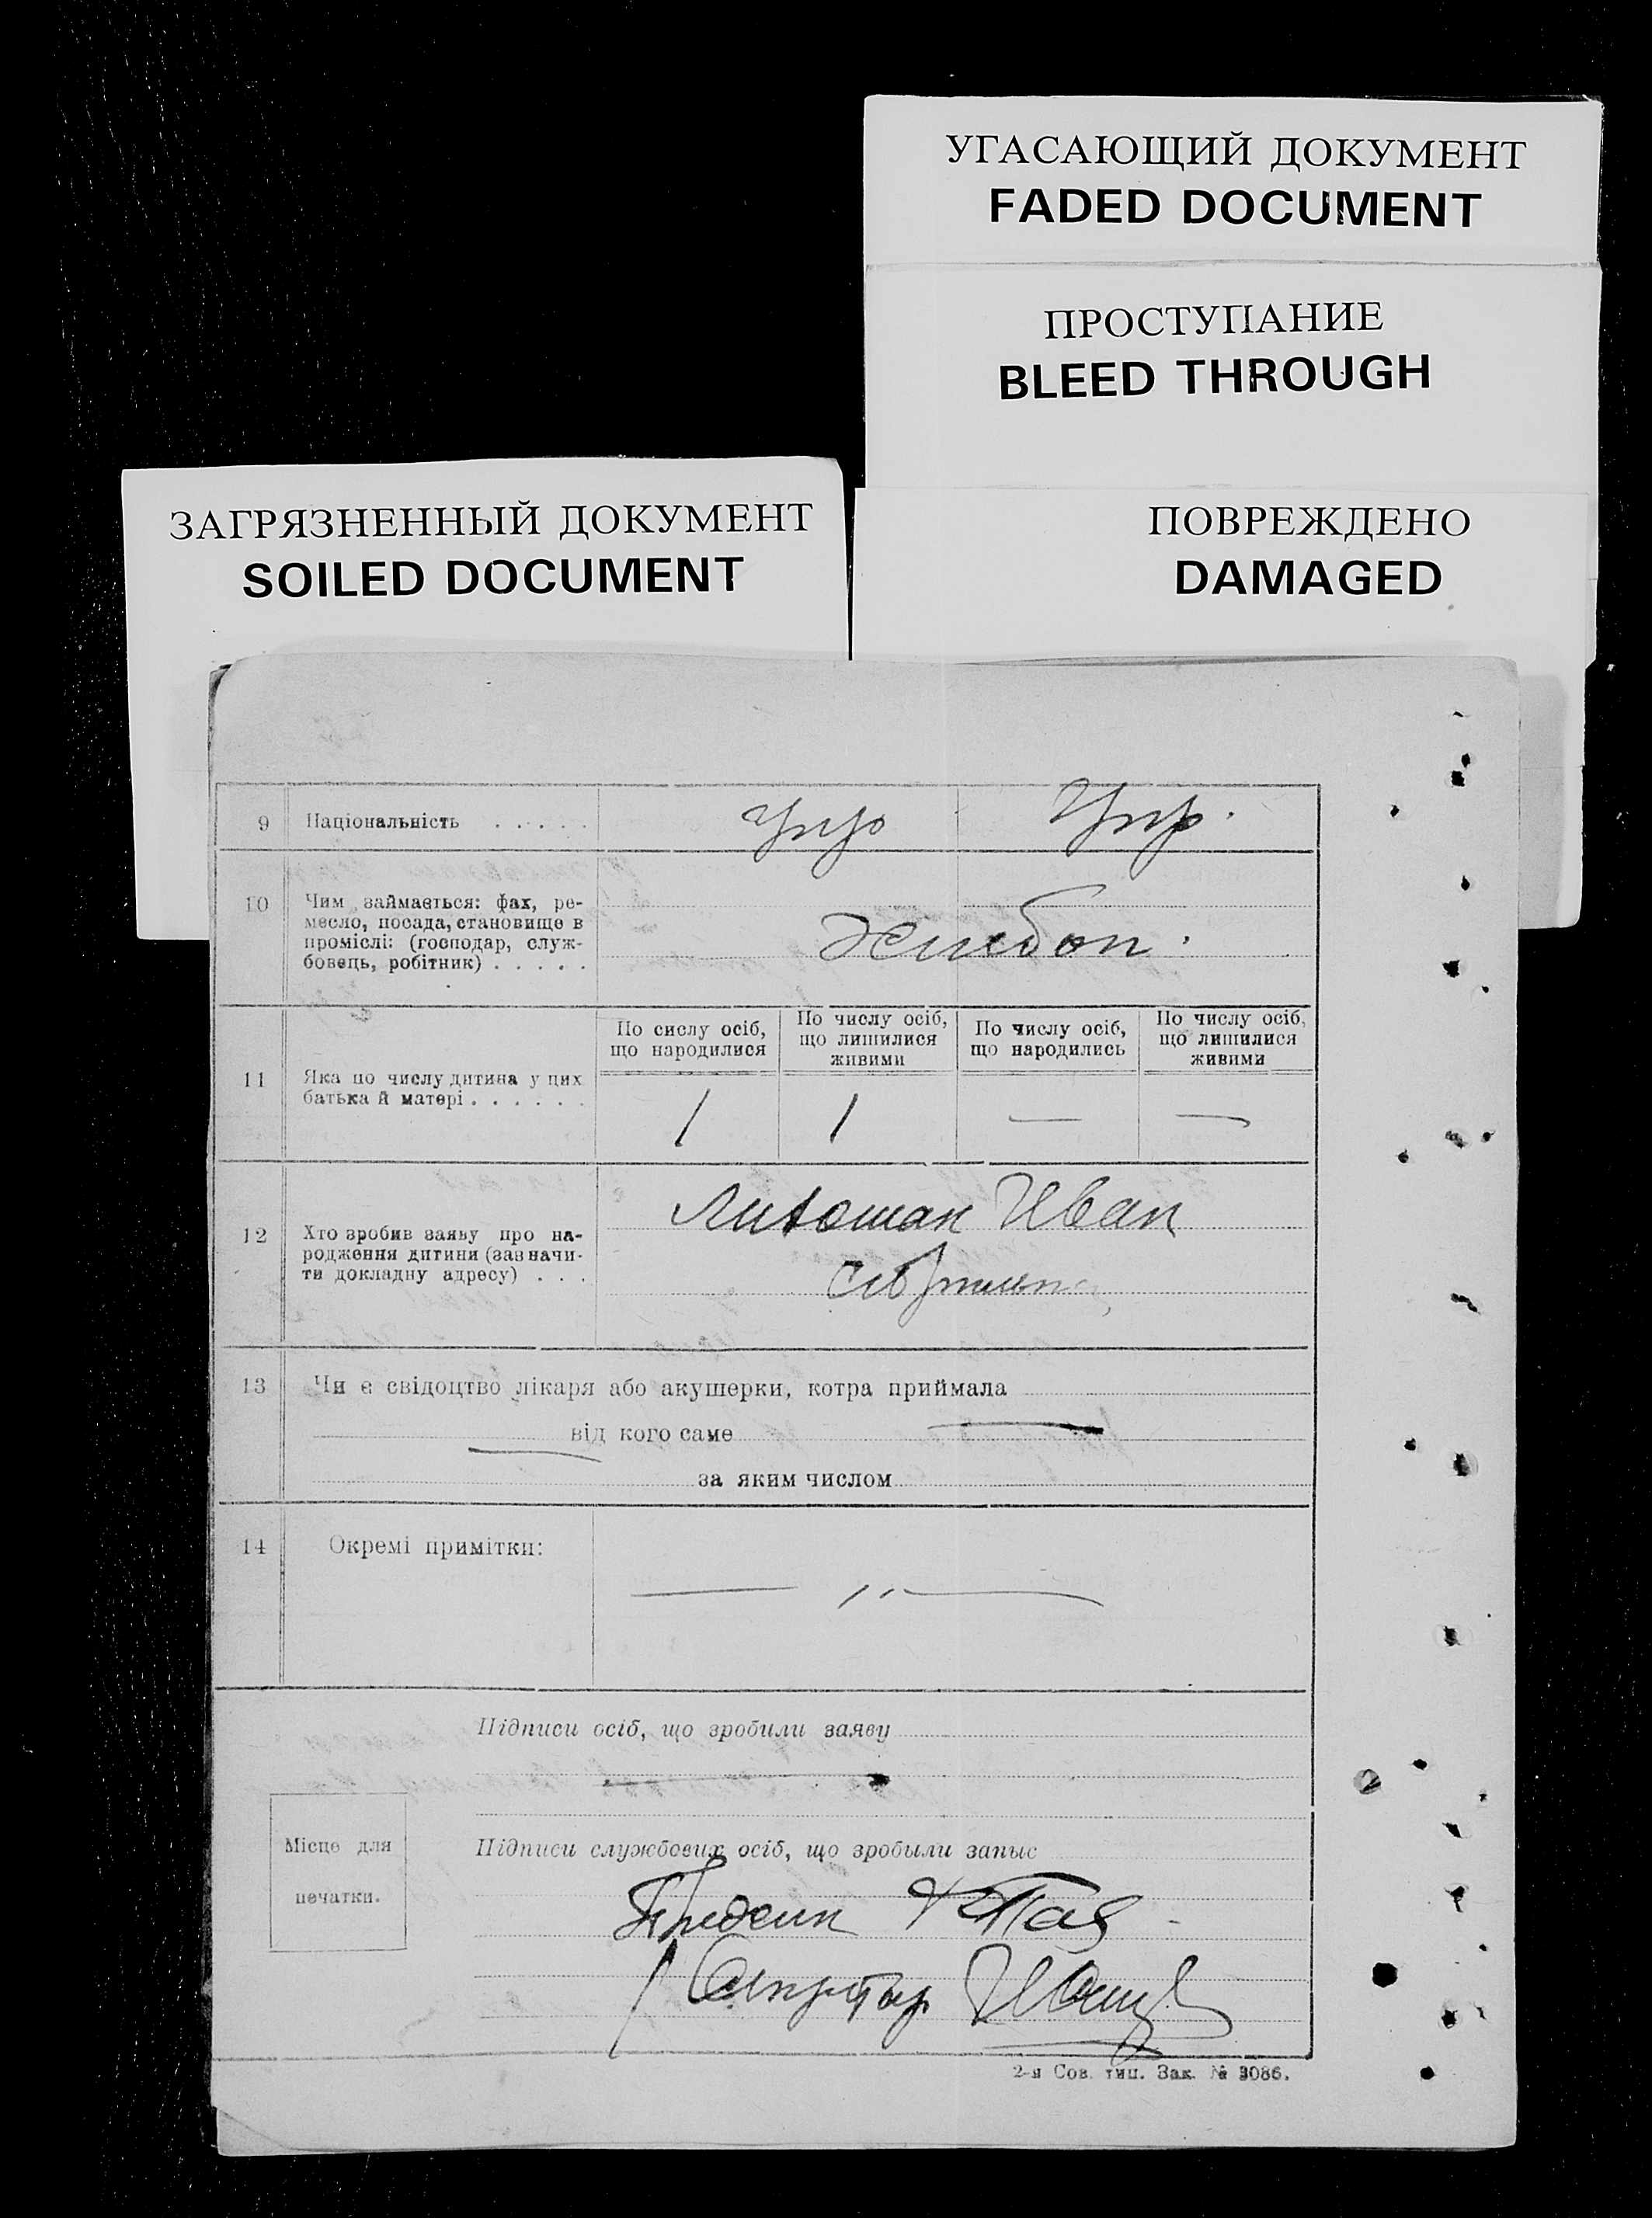 УГАСАЮЩИЙ ДОКУМЕНТ
FADED DOCUMENT
ПРОСТУПАНИЕ
BLEED THROUGH
ЗАГРЯЗНЕННЫЙ ДОКУМЕНТ
SOILED DOCUMENT
ПОВРЕЖДЕНО
DAMAGED
9 Національність . . . . . Укр Укр.
10 Чим займається: фах, ре-
месло, посада, становище в
проміслі: (господар, служ-
бовець, робітник) . . . . .
Хлебоп.
11 Яка по числу дитина у цих
батька й матері . . . . . .
По сислу осіб,
що народилися
По числу осіб,
що лишилися
живими
По числу осіб,
що народились
По числу осіб,
що лишилися
живими
1 1 — —
12 Хто зробив заяву про на-
родження дитини (зазначи-
ти докладну адресу) . . .
Иван
13 Чи є свідоцтво лікаря або акушерки, котра приймала
від кого саме
за яким числом
14 Окремі примітки:
— ,, —
Підписи осіб, що зробили заяву
Місце для
печатки.
Підписи службових осіб, що зробыли запыс
Секретар
2-я Сов. тип. Зак. № 3086.